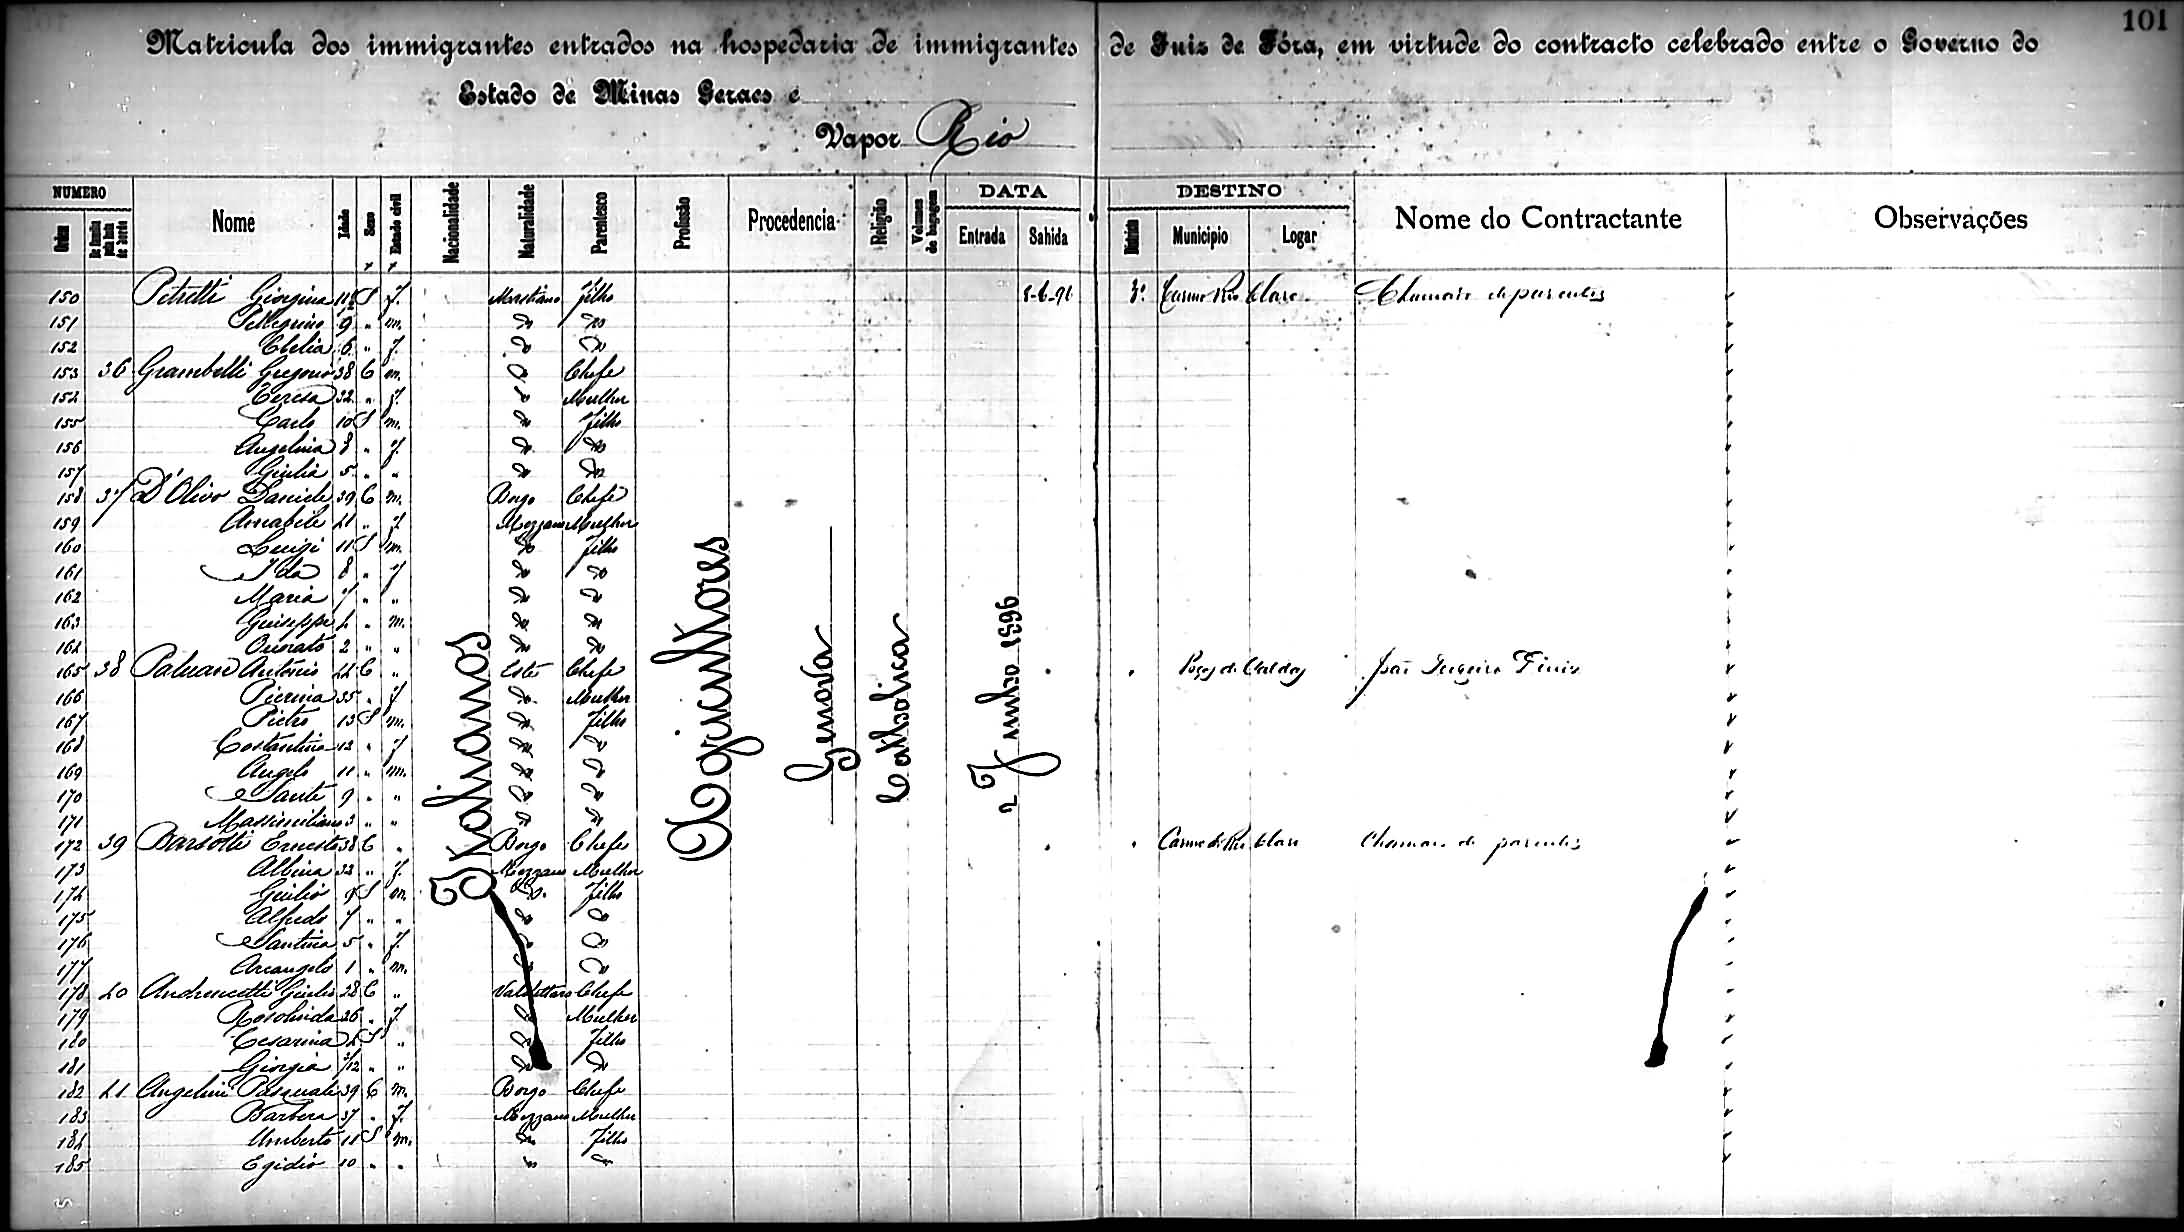 101
Matricula dos immigrantes entrados na hospedaria de immigrantes de Juiz de Fóra, em virtude do contracto celebrado entre o Governo do
Estado de Minas Geraes e
Vapor Rio
NUMERO DATA DESTINO
Ordem De familia pela lista de bordo Nome Idade Sexo Estado civil Nacionalidade Naturalidade Parentesco Profissão Procedencia Religião Volumes de bagagem Entrada Sahida Districto Municipio Logar Nome do Contractante Observações
150 Petretti Giorgina 11 S f. filho 8-6-96 3º Carmo Rio Claro Chamado de parentes
151 Pellegrino 9 " m. Do Do
152 Clelia 6 " f. Do Do
153 36 Grambelli Gregorio 38 C m. Do Chefe
154 Teresa 32 " f. Do Mulher
155 Carlo 10 S m. Do filho
156 Angelina 8 " f. Do Do
157 Giulia 5 " " Do Do
158 37 D'Olivo Daniele 39 C m. Borgo Chefe
159 Amabile 41 " f Mozzano Mulher
160 Luigi 11 S m. Do filho
161 Ida 8 " f Do Do
162 Maria 7 " " Do Do
163 Guiseppe 4 " m. Do Do
164 Onorato 2 " " Do Do
165 38 Paluan Antonio 44 C " Este Chefe " Poços de Caldas João
166 Pierina 35 " f Do Mulher
167 Pietro 13 S m. Do filho
168 Costantina 12 " f Do Do
169 Angelo 11 " m. Do Do
170 Sante 9 " " Do Do
171 Massimiliano 3 " " Do Do
172 39 Barsotti Ernesto 38 C " Borgo Chefe " Carmo do Rio Claro Chamado de parentes
173 Albina 33 " f. Mozzano Mulher
174 Giulio 9 S m. Do filho
175 Alfredo 7 " " Do Do
176 Santina 5 " f. Do Do
177 Arcangelo 1 " m. Do Do
178 40 Andreucetti Giulio 28 C " Valdottavo Chefe
179 Rosolinda 26 " f. Do Mulher
180 Cesarina 4 S " Do filho
181 Giorgia /12 " " Do Do
182 41 Angelini Pasquale 39 C m. Borgo Chefe
183 Barbera 37 " f. Mozzano Mulher
184 Umberto 11 S m. Do filho
185 Egidio 10 " " " "
Italianos
Agricultores
Genova
Catholica
2 Junho 1896